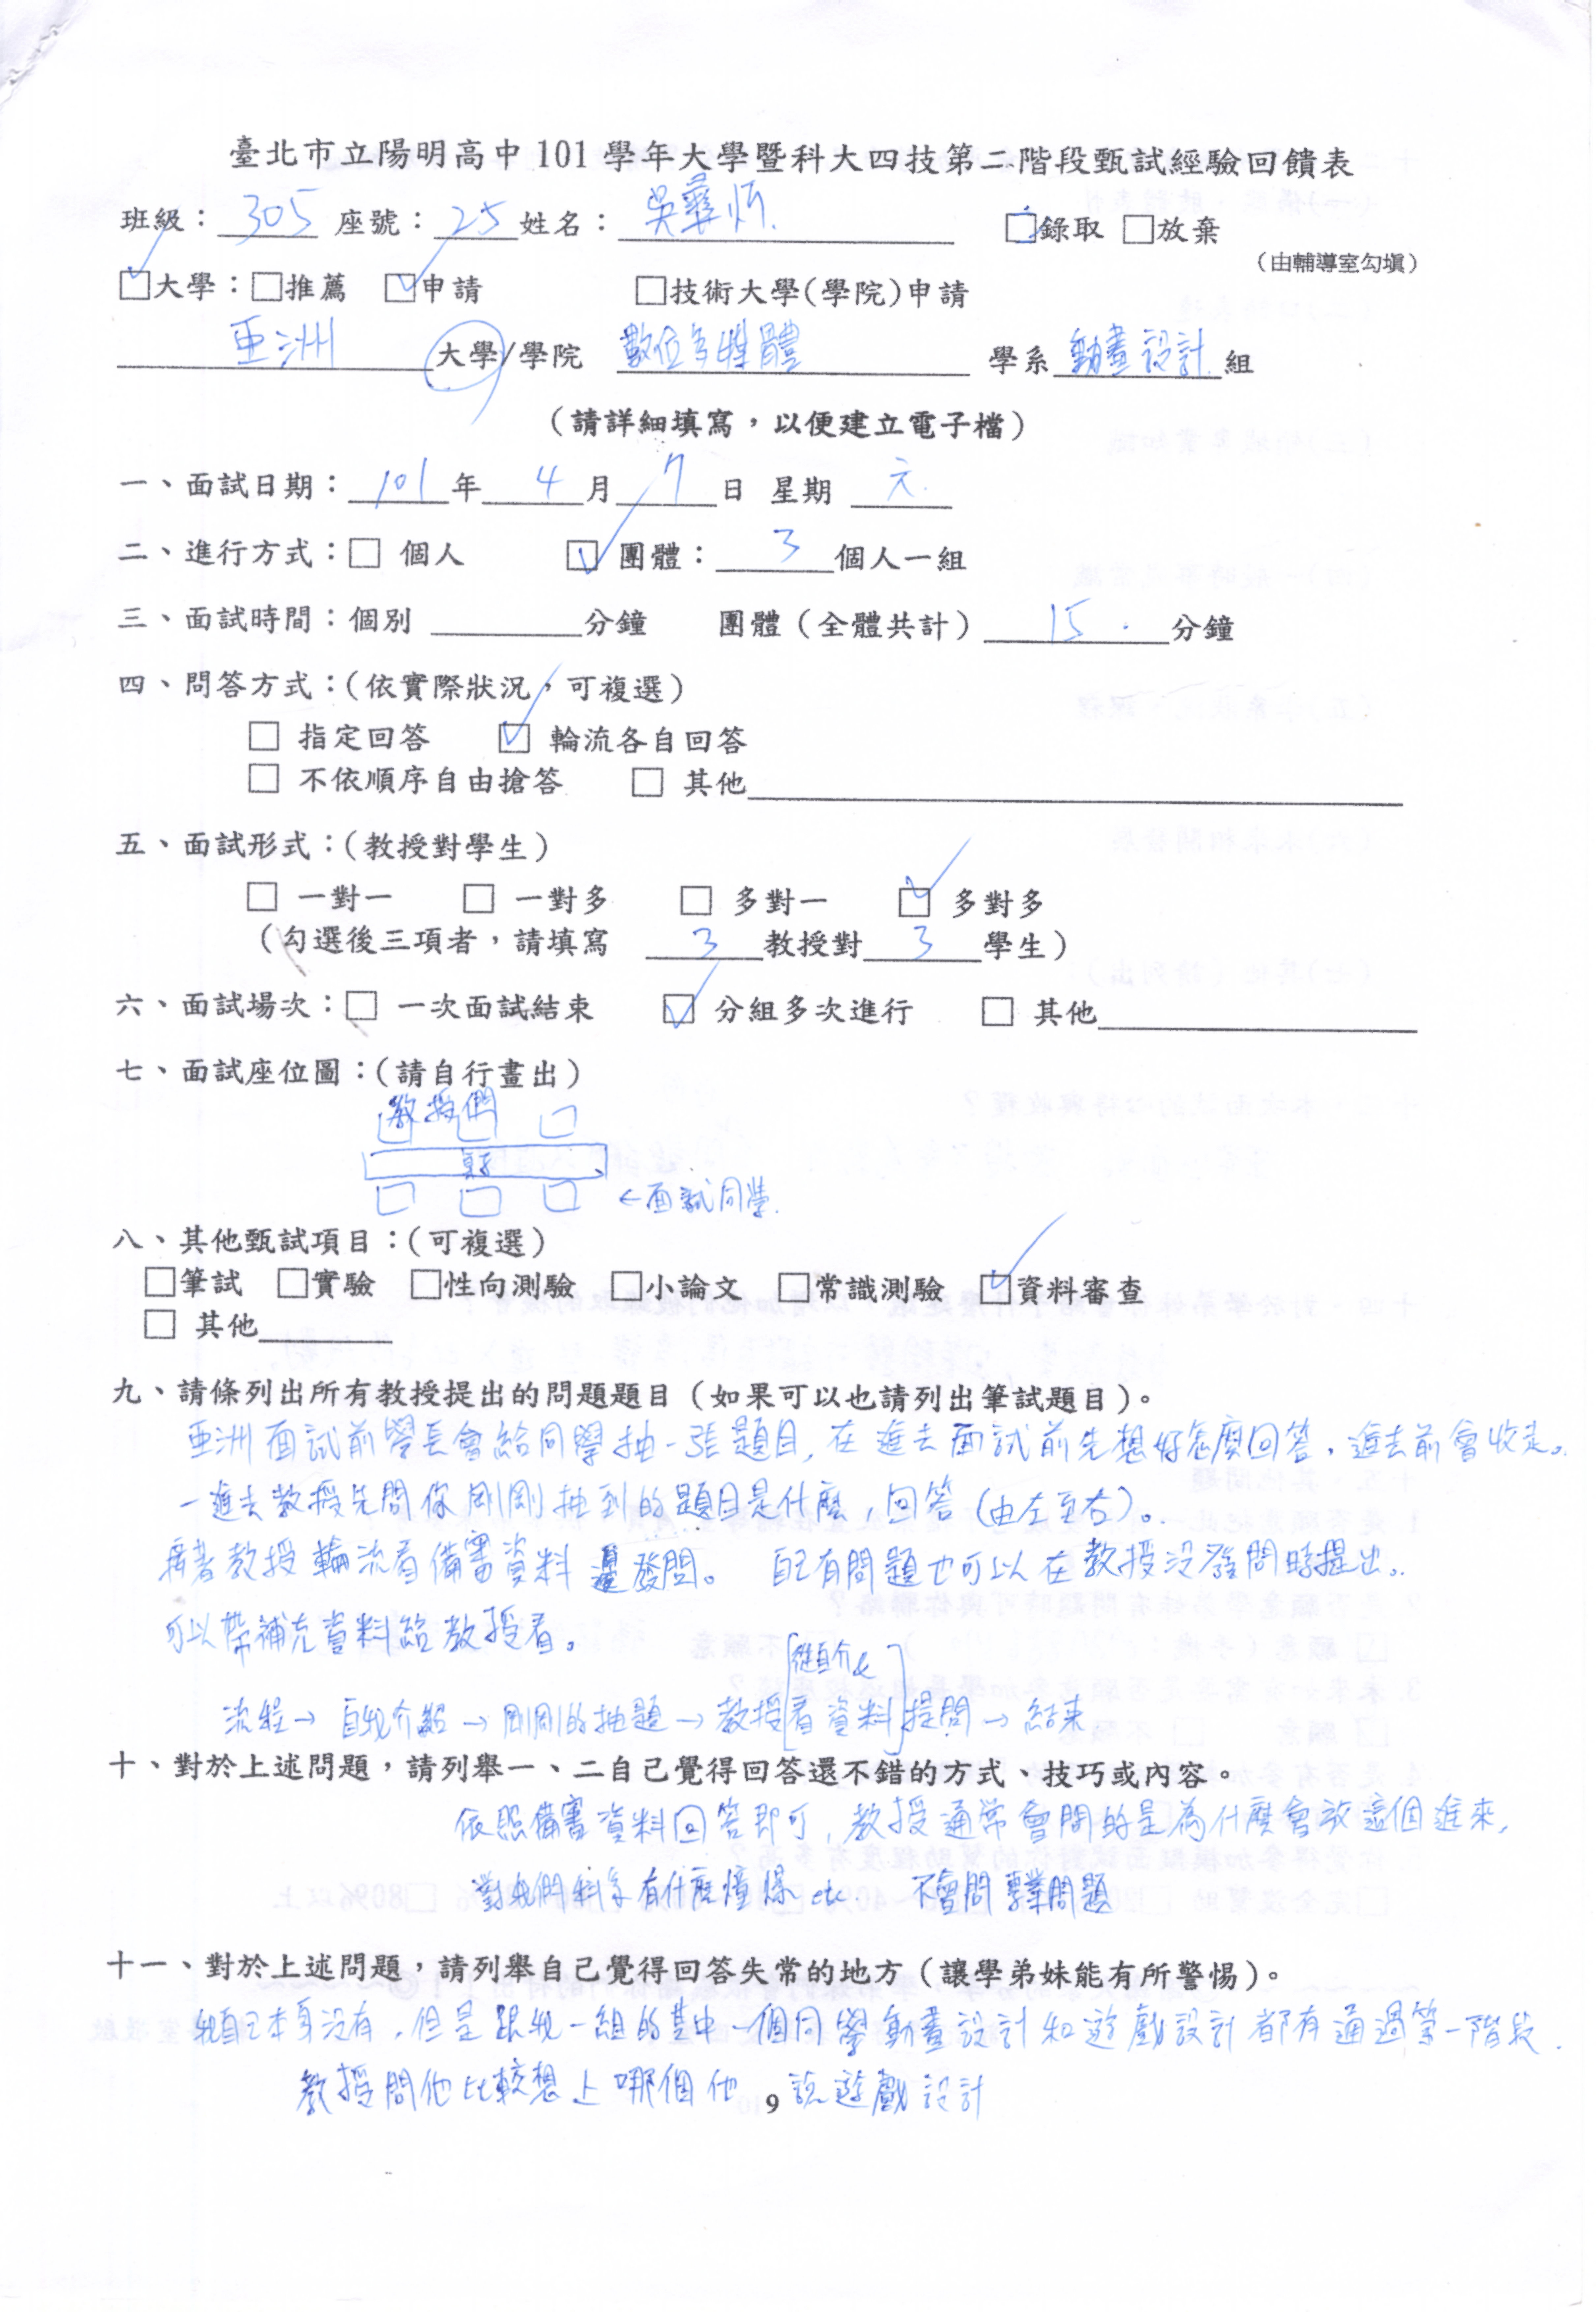 臺北市立陽明高中101學年大學暨科大四技第二階段甄試經驗回饋表
班級：305 座號：25 姓名：吳 □錄取 □放棄
（由輔導室勾填）
☑大學：□推薦 ☑申請 □技術大學(學院)申請
亞洲 大學/學院 數位多媒體 學系 動畫設計 組
（請詳細填寫，以便建立電子檔）
一、面試日期：101年4月7日 星期 六
二、進行方式：□ 個人 ☑ 團體：3個人一組
三、面試時間：個別 分鐘 團體（全體共計）15 分鐘
四、問答方式：(依實際狀況，可複選)
□ 指定回答 ☑ 輪流各自回答
□ 不依順序自由搶答 □ 其他
五、面試形式：(教授對學生)
□ 一對一 □ 一對多 □ 多對一 ☑ 多對多
（勾選後三項者，請填寫 3 教授對 3 學生）
六、面試場次：□ 一次面試結束 ☑ 分組多次進行 □ 其他
七、面試座位圖：(請自行畫出)
教授們
桌子
←面試同學
八、其他甄試項目：(可複選)
□筆試 □實驗 □性向測驗 □小論文 □常識測驗 ☑資料審查
□ 其他
九、請條列出所有教授提出的問題題目（如果可以也請列出筆試題目）。
亞洲面試前學長會給同學抽一張題目，在進去面試前先想好怎麼回答，進去前會收走。
一進去教授先問你剛剛抽到的題目是什麼，回答（由左至右）。
接著教授輪流看備審資料邊發問。 自己有問題也可以在教授沒發問時提出。
可以帶補充資料給教授看。
從自介&
流程→自我介紹→剛剛的抽題→教授[看資料]提問→結束
十、對於上述問題，請列舉一、二自己覺得回答還不錯的方式、技巧或內容。
依照備審資料回答即可，教授通常會問的是為什麼會放這個進來，
對我們科系有什麼憧憬etc. 不會問專業問題
十一、對於上述問題，請列舉自己覺得回答失常的地方（讓學弟妹能有所警惕）。
我自己本身沒有，但是跟我一組的其中一個同學動畫設計和遊戲設計都有通過第一階段．
教授問他比較想上哪個他 說遊戲設計
9